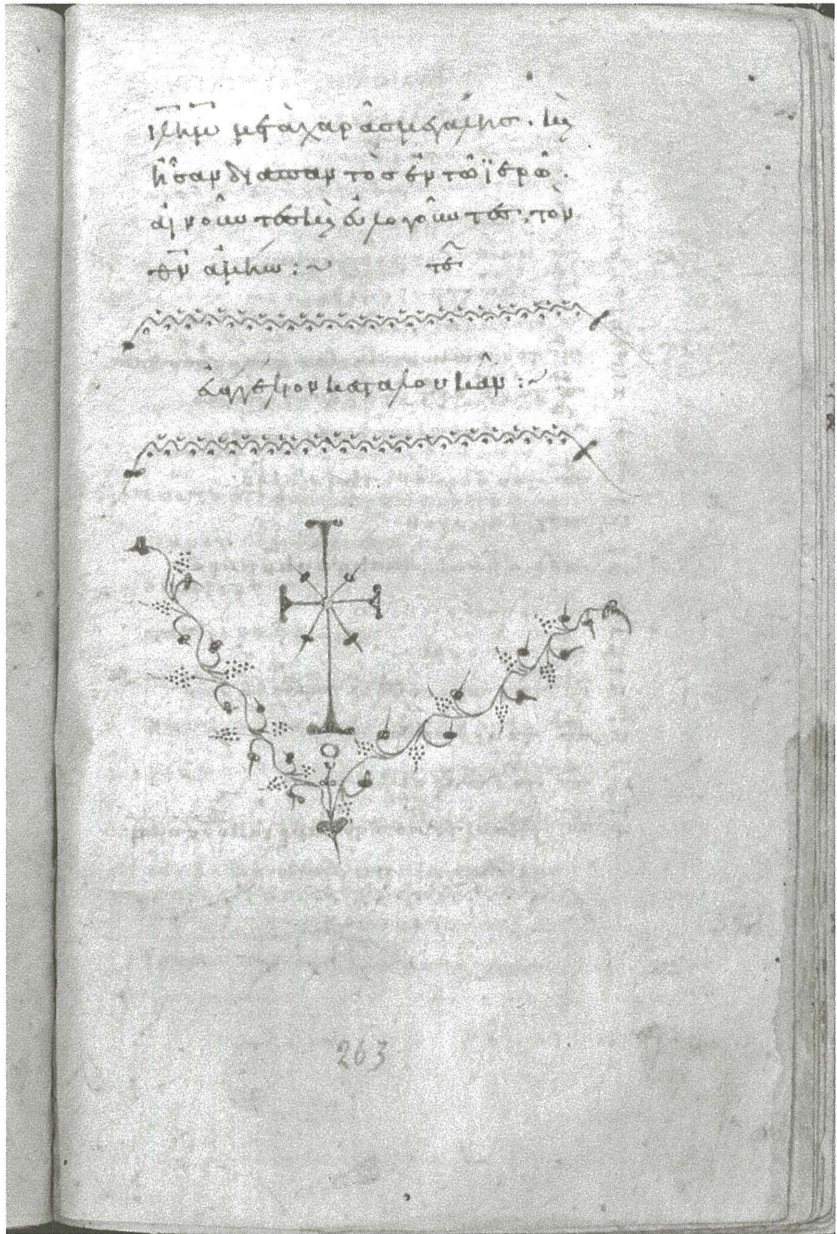 ιλημ μετὰ χαρᾶσ μεγάλησ. καὶ
ἦσαν διαπαντὸσ ἐν τῶ ϊερῶ.
αἰνοῦντεσ καὶ εὐλογοῦντεσ. τὸν
θν ἀμήν :~
εὐαγγέλιον κατὰ λουκᾶν :~
263